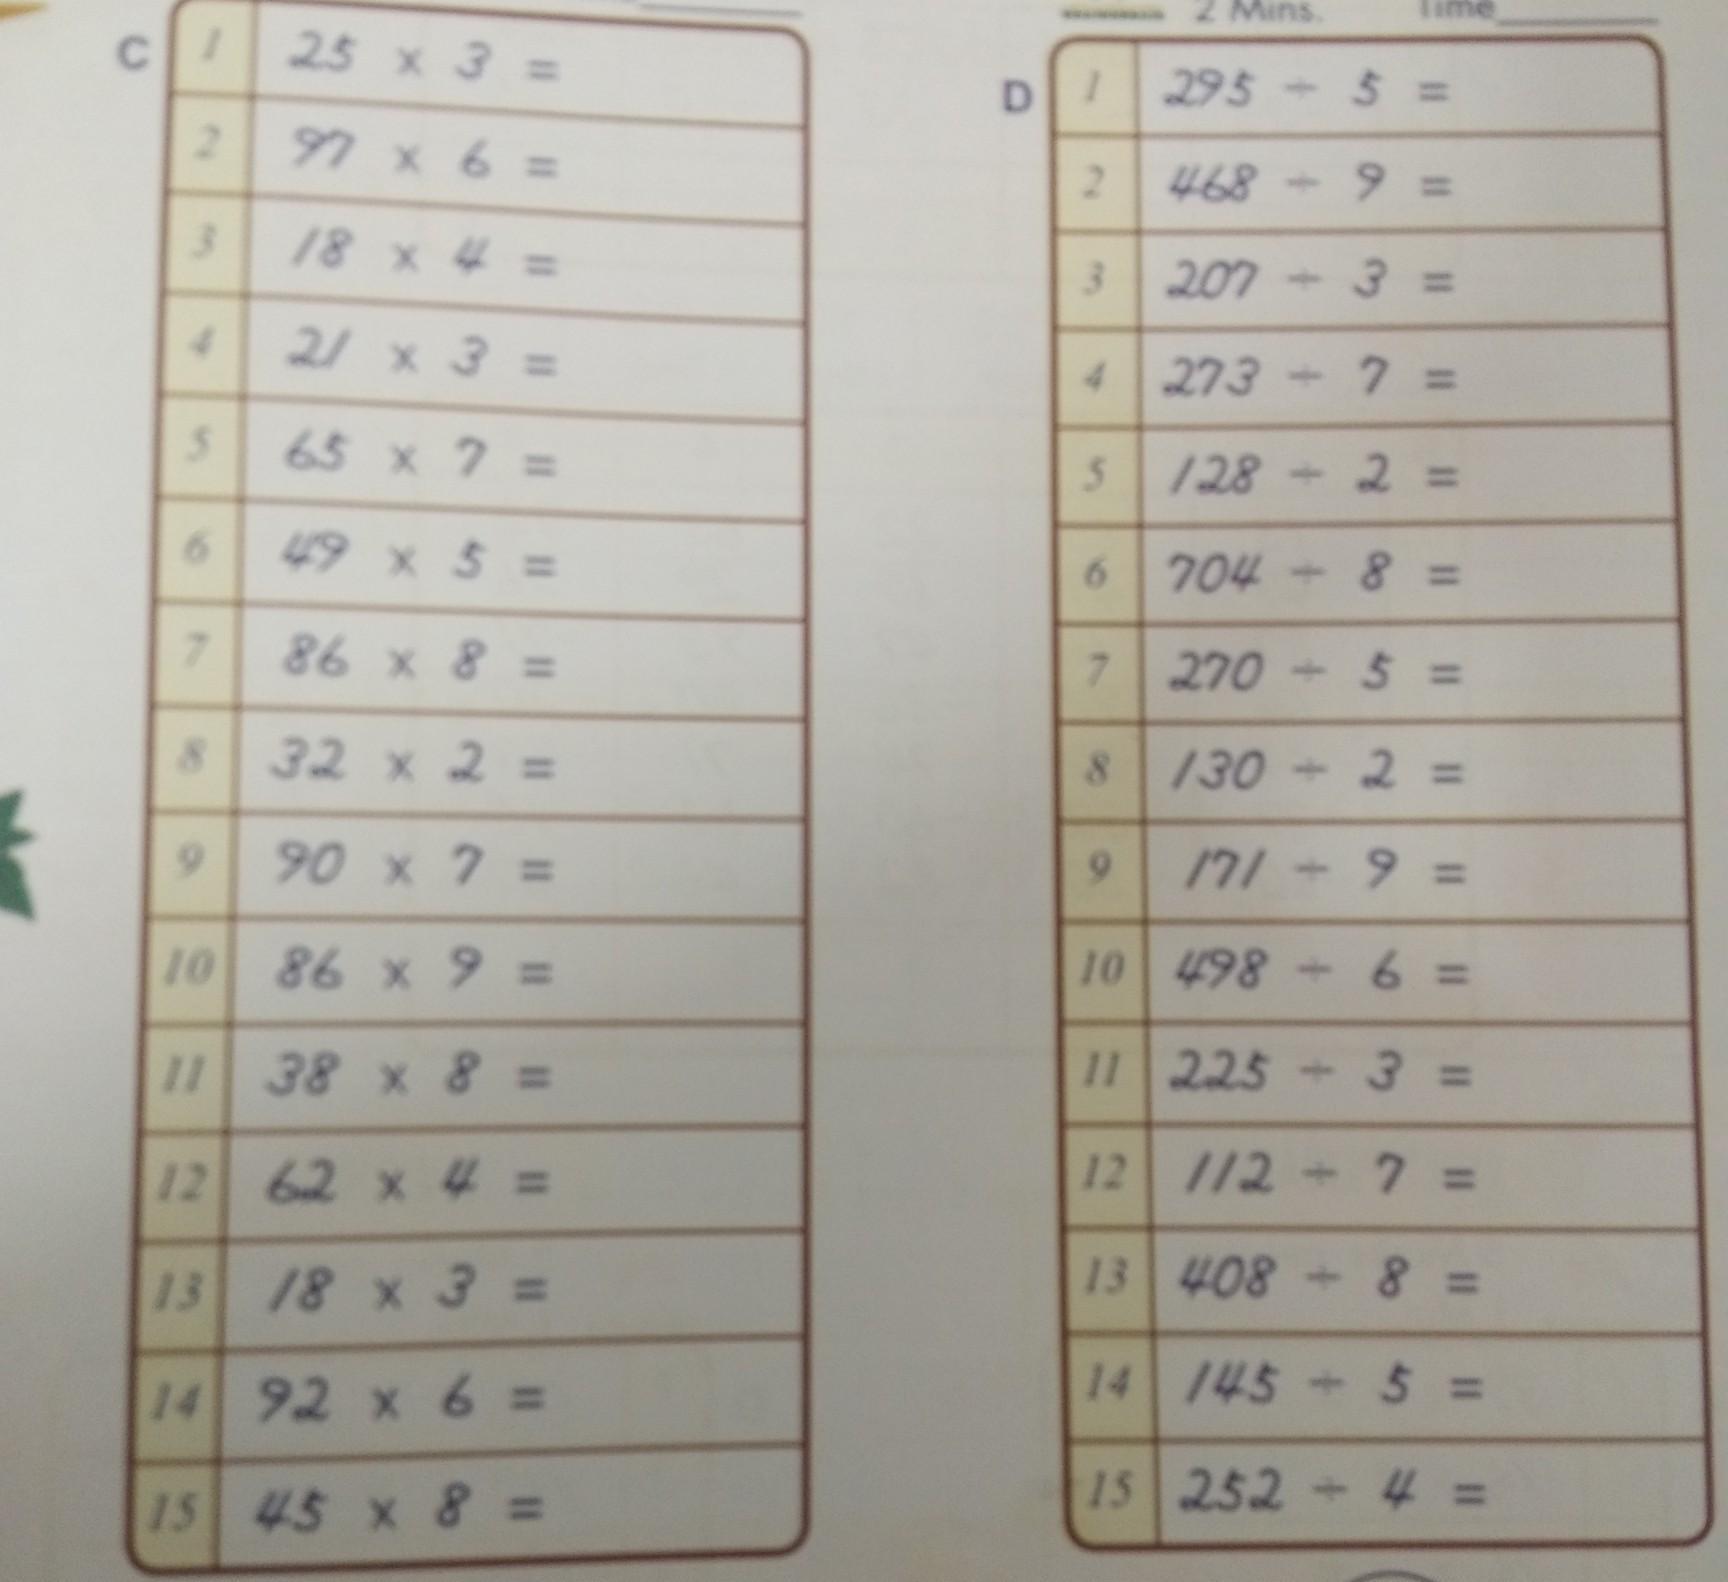 2 Mins. Time
C
1 25 x 3 =
2 97 x 6 =
3 18 x 4 =
4 21 x 3 =
5 65 x 7 =
6 49 x 5 =
7 86 x 8 =
8 32 x 2 =
9 90 x 7 =
10 86 x 9 =
11 38 x 8 =
12 62 x 4 =
13 18 x 3 =
14 92 x 6 =
15 45 x 8 =
D
1 295 ÷ 5 =
2 468 ÷ 9 =
3 207 ÷ 3 =
4 273 ÷ 7 =
5 128 ÷ 2 =
6 704 ÷ 8 =
7 270 ÷ 5 =
8 130 ÷ 2 =
9 171 ÷ 9 =
10 498 ÷ 6 =
11 225 ÷ 3 =
12 112 ÷ 7 =
13 408 ÷ 8 =
14 145 ÷ 5 =
15 252 ÷ 4 =